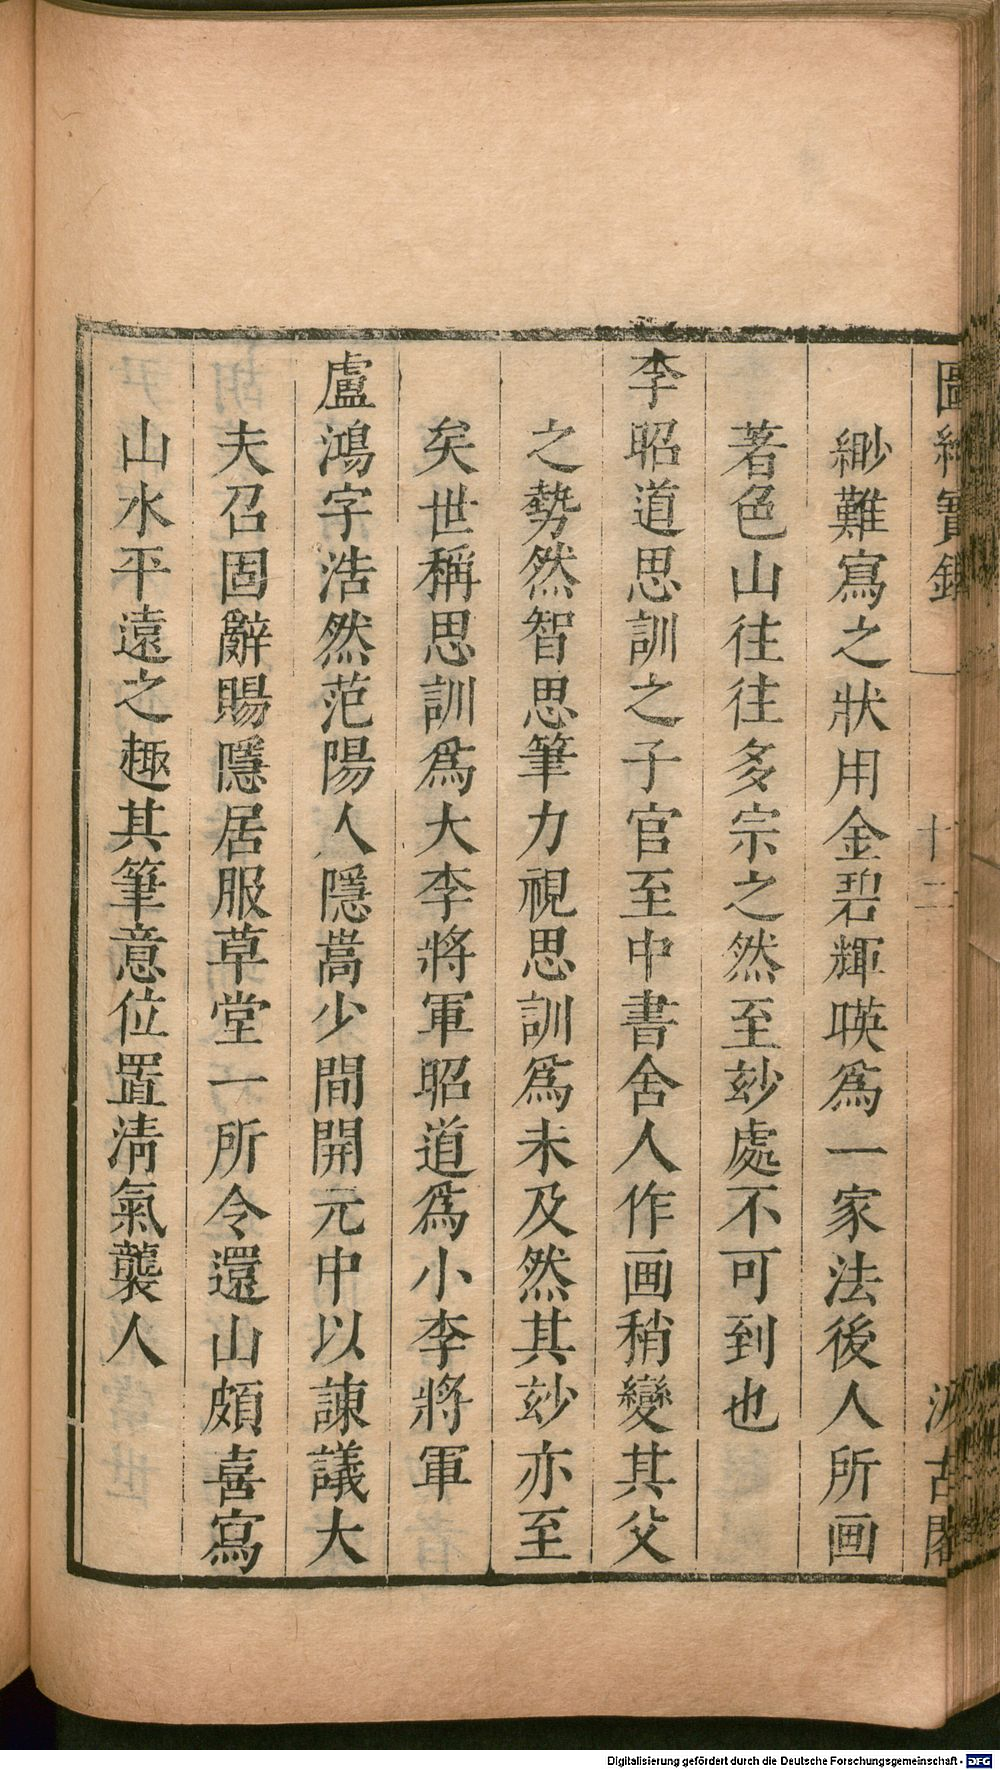 圖繪寶鑑
十二
汲古閣
緲難寫之狀用金碧輝暎爲一家法後人所画
著色山往往多宗之然至玅處不可到也
李昭道思訓之子官至中書舍人作画稍變其父
之勢然智思筆力視思訓爲未及然其玅亦至
矣世稱思訓爲大李將軍昭道爲小李將軍
盧鴻字浩然范陽人隱嵩少間開元中以諫議大
夫召固辭賜隱居服草堂一所令還山頗喜寫
山水平遠之趣其筆意位置淸氣襲人
Digitalisierung gefördert durch die Deutsche Forschungsgemeinschaft - DFG